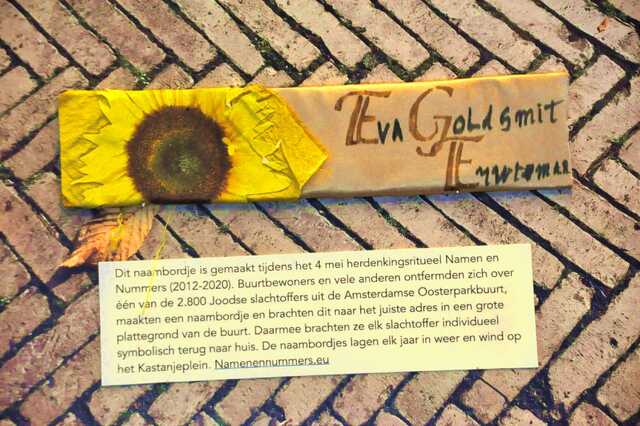 Eva Goldsmit
Dit naambordje is gemaakt tijdens het 4 mei herdenkingsritueel Namen en
Nummers (2012-2020). Buurtbewoners en vele anderen ontfermden zich over
één van de 2.800 Joodse slachtoffers uit de Amsterdamse Oosterparkbuurt,
maakten een naambordje en brachten dit naar het juiste adres in een grote
plattegrond van de buurt. Daarmee brachten ze elk slachtoffer individueel
symbolisch terug naar huis. De naambordjes lagen elk jaar in weer en wind op
het Kastanjeplein. Namenennummers.eu